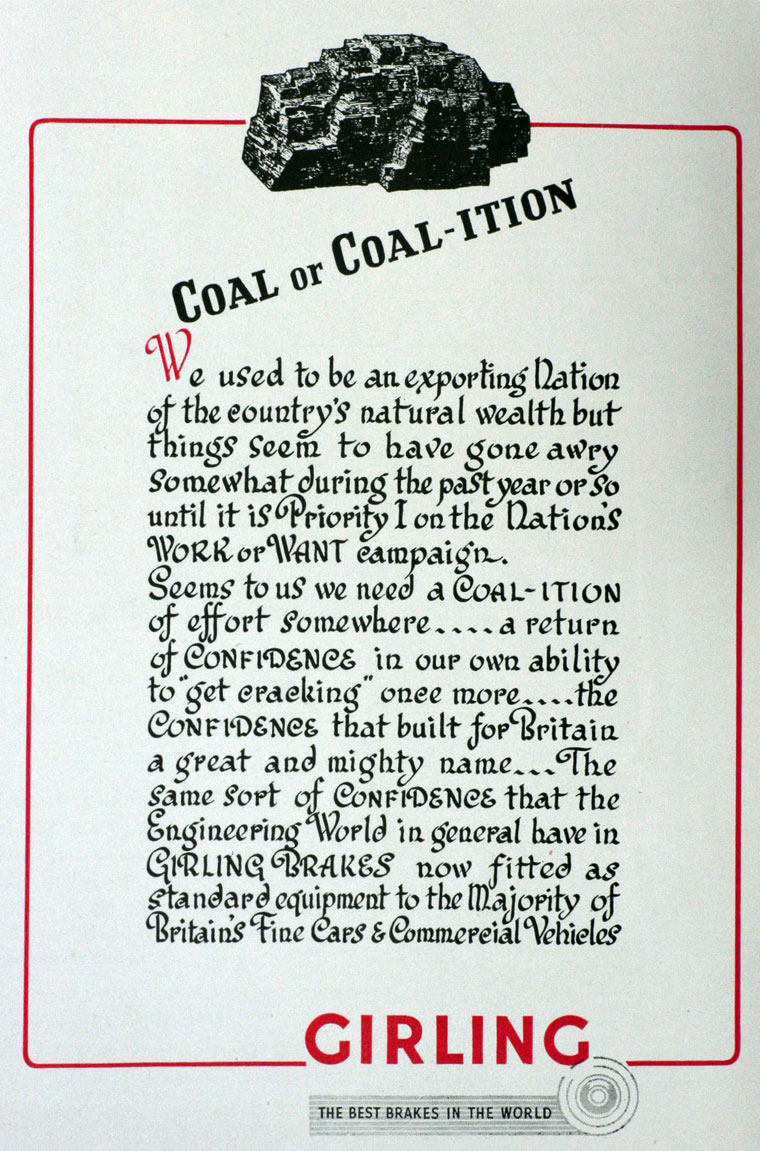 COAL or COAL-ITION
We used to be an exporting Nation
of the country's natural wealth but
things seem to have gone awry
somewhat during the past year or so
until it is Priority I on the Nation's
WORK or WANT campaign.
Seems to us we need a COAL-ITION
of effort somewhere.... a return
of CONFIDENCE in our own ability
to "get cracking" once more....the
CONFIDENCE that built for Britain
a great and mighty name...The
same sort of CONFIDENCE that the
Engineering World in general have in
GIRLING BRAKES now fitted as
standard equipment to the Majority of
Britain's Fine Cars & Commercial Vehicles
GIRLING
THE BEST BRAKES IN THE WORLD